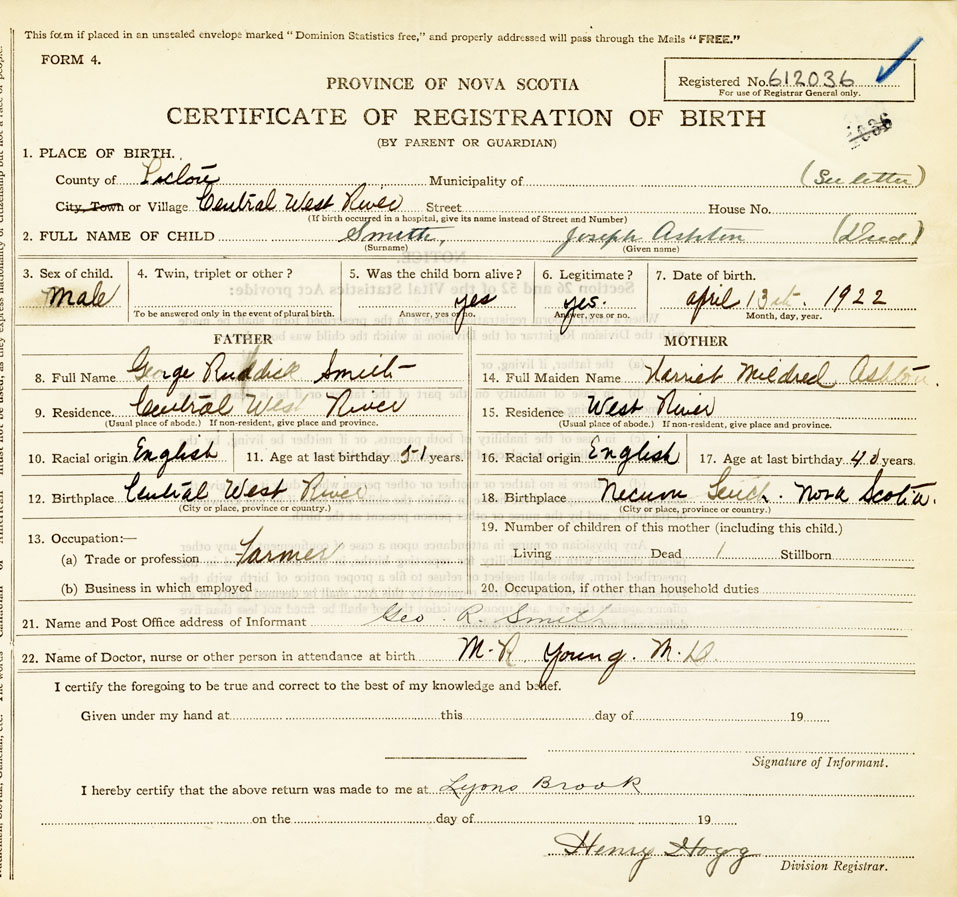 This form if placed in an unsealed envelope marked "Dominion Statistics free," and properly addressed will pass through the Mails "FREE."
FORM 4.
Registered No. 612036
For use of Registrar General only.
PROVINCE OF NOVA SCOTIA
CERTIFICATE OF REGISTRATION OF BIRTH
(BY PARENT OR GUARDIAN)
2036
1. PLACE OF BIRTH.
County of Pictou Municipality of (See letter)
City, Town or Village Central West River Street House No.
(If birth occurred in a hospital, give its name instead of Street and Number)
2. FULL NAME OF CHILD Smith, Joseph Ashton (Died)
(Surname) (Given name)
3. Sex of child. 4. Twin, triplet or other? 5. Was the child born alive? 6. Legitimate? 7. Date of birth.
Male yes yes. april 13th. 1922
To be answered only in the event of plural birth. Answer, yes or no. Answer, yes or no. Month, day, year.
FATHER MOTHER
8. Full Name George Ruddick Smith 14. Full Maiden Name Harriet Mildred Ashton.
9. Residence. Central West River 15. Residence West River
(Usual place of abode.) If non-resident, give place and province. (Usual place of abode.) If non-resident, give place and province.
10. Racial origin English 11. Age at last birthday 51 years. 16. Racial origin English 17. Age at last birthday 40 years.
12. Birthplace Central West River 18. Birthplace Nova Scotia.
(City or place, province or country.) (City or place, province or country.)
13. Occupation:— 19. Number of children of this mother (including this child.)
(a) Trade or profession Farmer Living Dead 1 Stillborn
(b) Business in which employed 20. Occupation, if other than household duties
21. Name and Post Office address of Informant Geo. R. Smith
22. Name of Doctor, nurse or other person in attendance at birth M. R. Young. M. D.
I certify the foregoing to be true and correct to the best of my knowledge and belief.
Given under my hand at this day of 19
Signature of Informant.
I hereby certify that the above return was made to me at Lyons Brook
on the day of 19
Henry Hogg
Division Registrar.